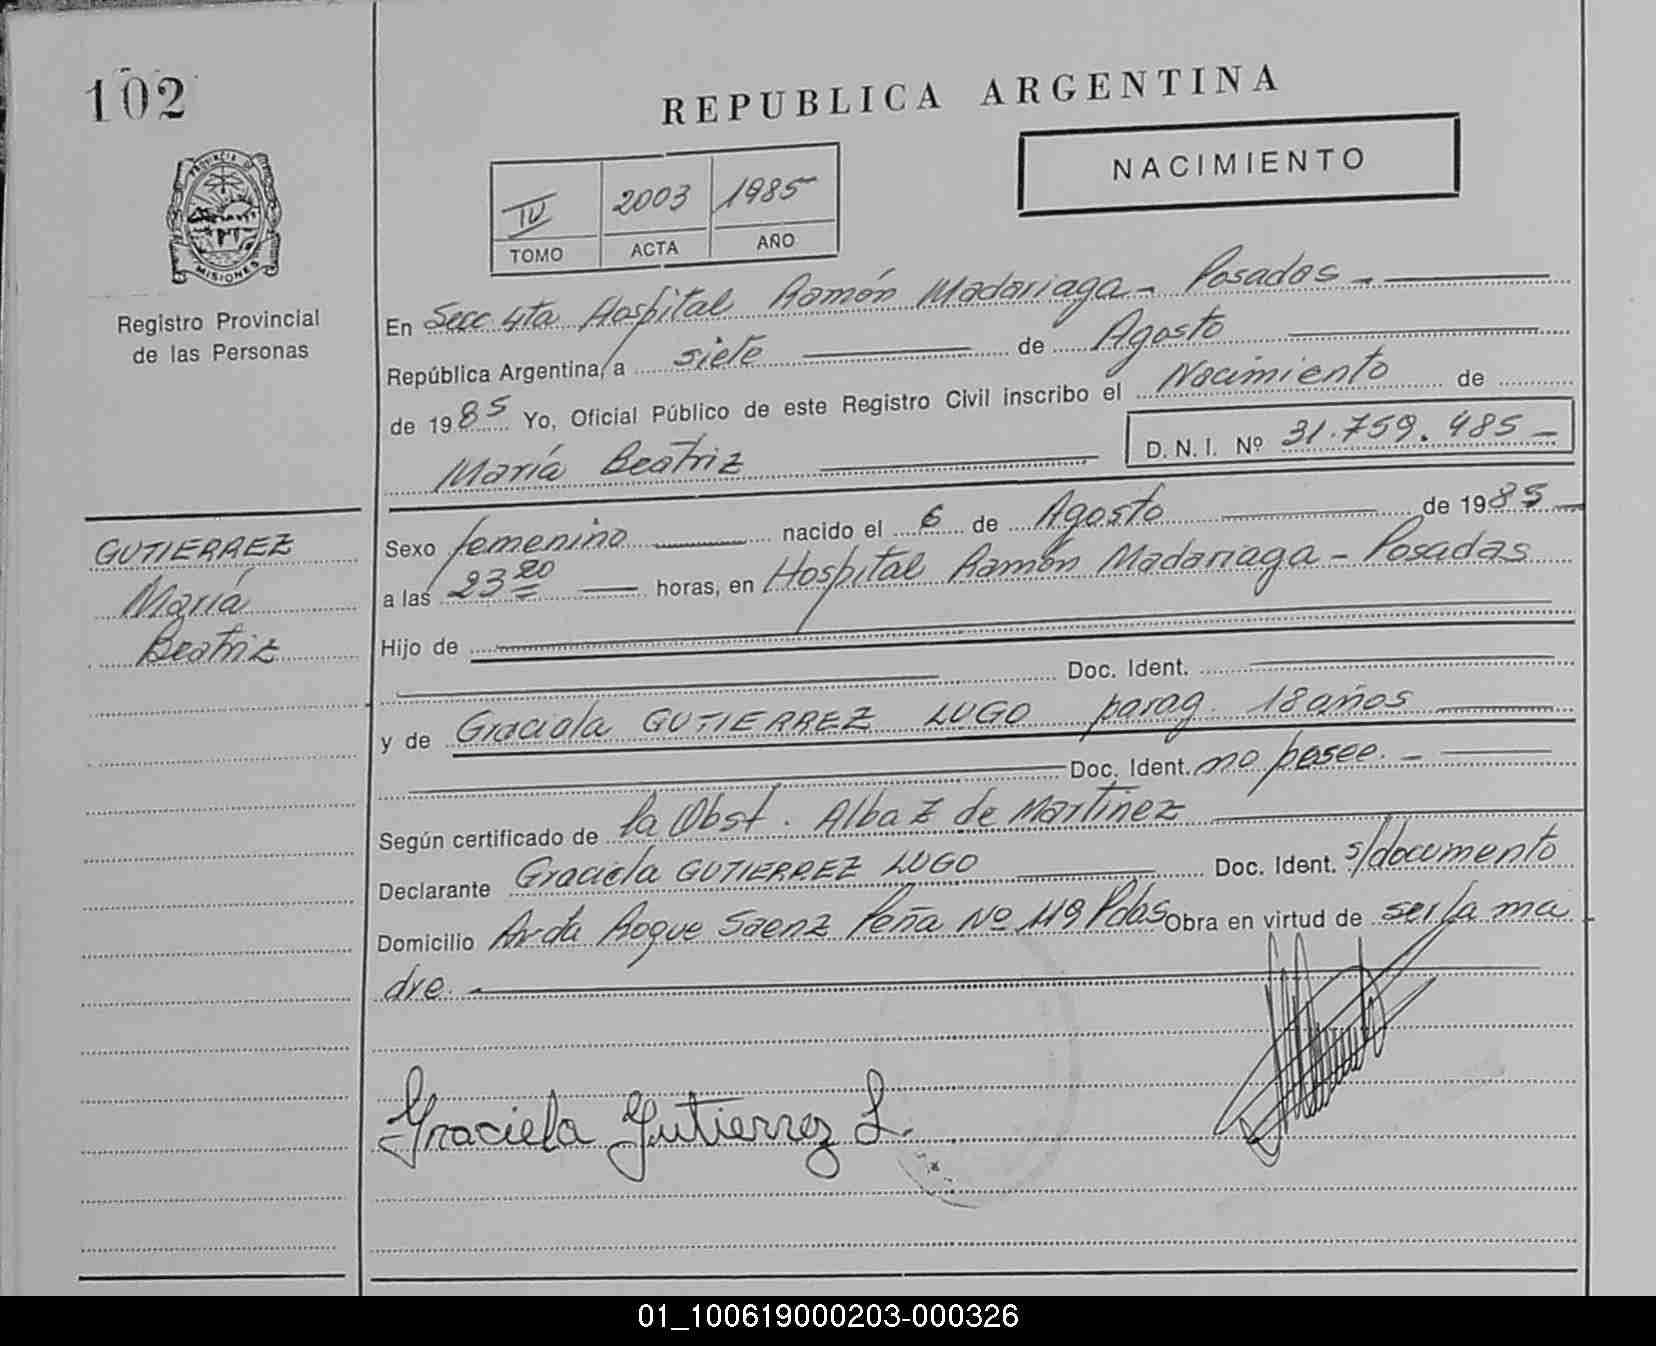 102
REPUBLICA ARGENTINA
NACIMIENTO
IV 2003 1985
TOMO ACTA AÑO
PROVINCIA DE
MISIONES
Registro Provincial
de las Personas
En Secc 4ta Hospital Ramón Madariaga - Posadas -
República Argentina, a siete de Agosto
de 1985 Yo, Oficial Público de este Registro Civil inscribo el Nacimiento de
María Beatriz D. N. I. Nº 31.759.485 -
GUTIERREZ
María
Beatriz
Sexo femenino nacido el 6 de Agosto de 1985
a las 23 20 horas, en Hospital Ramón Madariaga - Posadas
Hijo de
Doc. Ident.
y de Graciela GUTIERREZ LUGO parag. 18 años
Doc. Ident. no posee. -
Según certificado de la Obst. Alba Z de Martinez
Declarante Graciela GUTIERREZ LUGO Doc. Ident. s/documento
Domicilio Avda Roque Saenz Peña Nº 119 Pdas Obra en virtud de ser la ma
dre.
Graciela Gutierrez L.
01_100619000203-000326